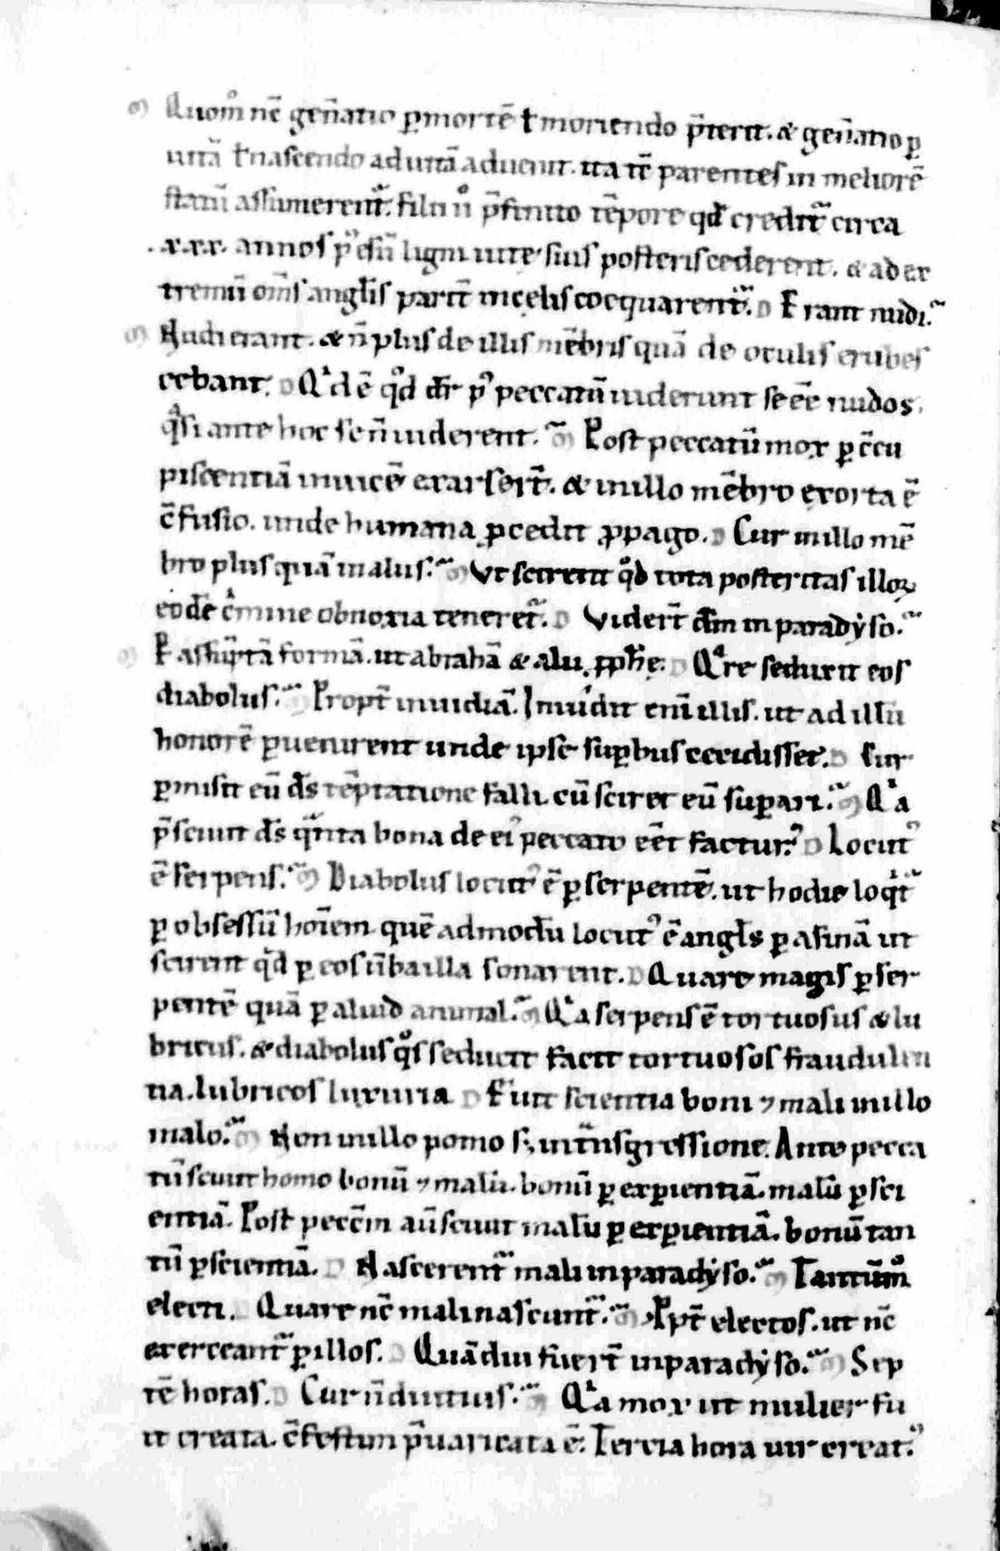 Quom̊ nc̄ gen̄atio ꝑ mortē ł moriendo p̄terit. & gen̄atio ꝑ
uitā ł nascendo ad uitā aduenit. ita tc̄ parentes in meliorē
statū assumerent᷑. filii u̾ p̄finito tēpore qđ credit᷑ circa
.xxx. annos pꝰ esū ligni uite suis posteris cederent. & ad ex
tremū om̄s angl̄is parit̄ in celis coequarent᷑. D Erant nudi.
M Nudi erant. & n̄ plus de illis mēbris quā de oculis erubes
cebant. D Qͥd ē qͦd dr̄ pꝰ peccatū uiderunt se ēē nudos.
qͣsi ante hoc se n̄ uiderent. M Post peccatū mox ꝑ c̄cu
piscentiā inuicē exarsert̄. & in illo mēbro exorta ē
c̄fusio. unde humana ꝓcedit ꝓpago. D Cur in illo mē
bro plus quā in alius. M Vt scirent qͦd tota posteritas illoꝝ
eodē cͥmine obnoxia teneret᷑. D Vidert̄ dm̄ in paradẏso.
M P assūptā formā. ut abrahā & alii ꝓph̄e. D Qͣre seduxit eos
diabolus. M Propt̄ inuidiā. Inuidit enī illis. ut ad illū
honorē ꝑuenirent unde ipse suꝑbus cecidisset. D Cur
ꝑmisit eū ds̄ tēptatione falli. cū sciret eū suꝑari. M Qͥa
p̄sciuit ds̄ qͣnta bona de eiꝰ peccato eēt facturꝰ. D Locutꝰ
ē serpens. M Diabolus locutꝰ ē ꝑ serpentē. ut hodie loqͥt᷑
ꝑ obsessū hoīem. quē admodū locutꝰ ē angl̄s ꝑ asinā ut
scirent qͦd ꝑ eos ūba illa sonarent. D Quare magis ꝑ ser
pentē quā ꝑ aliud animal. M Qͥa serpens ē tortuosus & lu
bricus. & diabolus qͦs seducit facit tortuosos fraudulen
tia. lubricos luxuria D Fuit scientia boni ⁊ mali in illo
malo. M Non in illo pomo s; in tn̄sg̊ressione. Ante pecca
tū sciuit homo bonū ⁊ malū. bonū ꝑ exꝑientiā. malū ꝑ sci
entiā. Post pecc̄m aū sciuit malū ꝑ exꝑientiā. bonū tan
tū ꝑ scientiā. D Nascerent᷑ mali in paradẏso. M Tantūm̊
electi. D Quare nc̄ mali nascunt᷑. M Ꝓpt̄ electos. ut nc̄
exerceant᷑ ꝑ illos. D Quādiu fuert̄ in paradẏso. M Sep
tē horas. D Cur n̄ diutius. M Qͥa mox ut mulier fu
it creata. c̄festim p̄uaricata ē. Tercia hora uir creatꝰ.